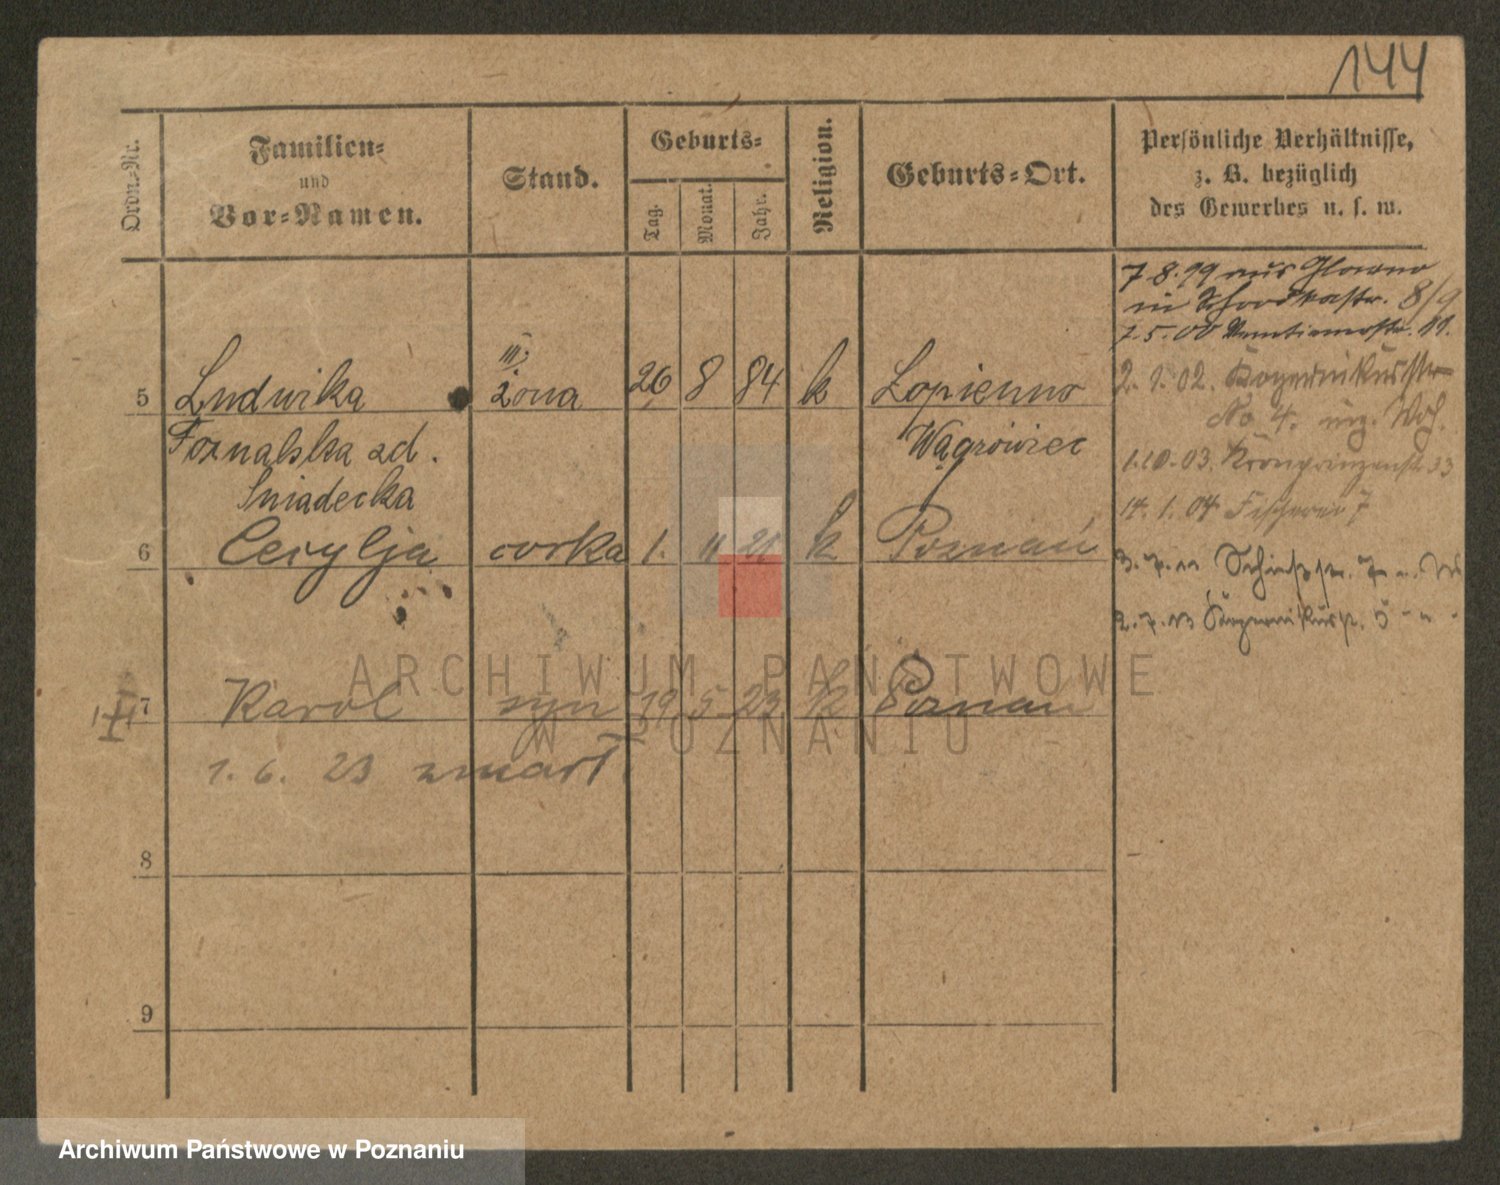 144
Ordn.-Nr.
Familien-
und
Vor-Namen.
Stand.
Geburts-
Tag.
Monat.
Jahr.
Religion.
Geburts-Ort.
Persönliche Verhältnisse,
z. B. bezüglich
des Gewerbes u. s. w.
7.8.99 aus Glowno
in 8/9
7.5.00 11.
III
5 Ludwika żona 26 8 84 k Łopienno
2.1.02.
No 4.
Fornalska zd. Wągrówiec
1.10.03. Kronprinzenstr. 33
Śniadecka
14.1.04 Fischerei 7
6 Cecylja córka 1. 11 21 k Poznań
3.7.11
2.7.13
7 Karol syn 19 5 23 k Poznań
1.6.23 zmarł
8
9
ARCHIWUM PAŃSTWOWE
W POZNANIU
Archiwum Państwowe w Poznaniu